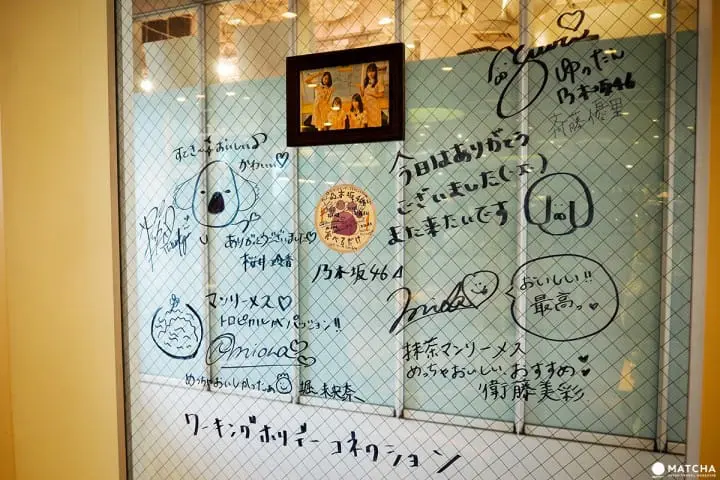 ゆったん
乃木坂46
斎藤優里
すてき〜♪おいしい♪
かわいい♡
ありがとうございました♡
桜井玲香
今日はありがとう
ございました(-工-)
また来たいです
乃木坂46
マンリーメス♡
トロピカルパッション!!
@miona♡
めっちゃおいしかったぁ
堀 未央奈
おいしい!!
最高っ♥
抹茶マンリーメス
めっちゃおいしい、おすすめ♥
衛藤美彩
ワーキングホリデーコネクション
MATCHA